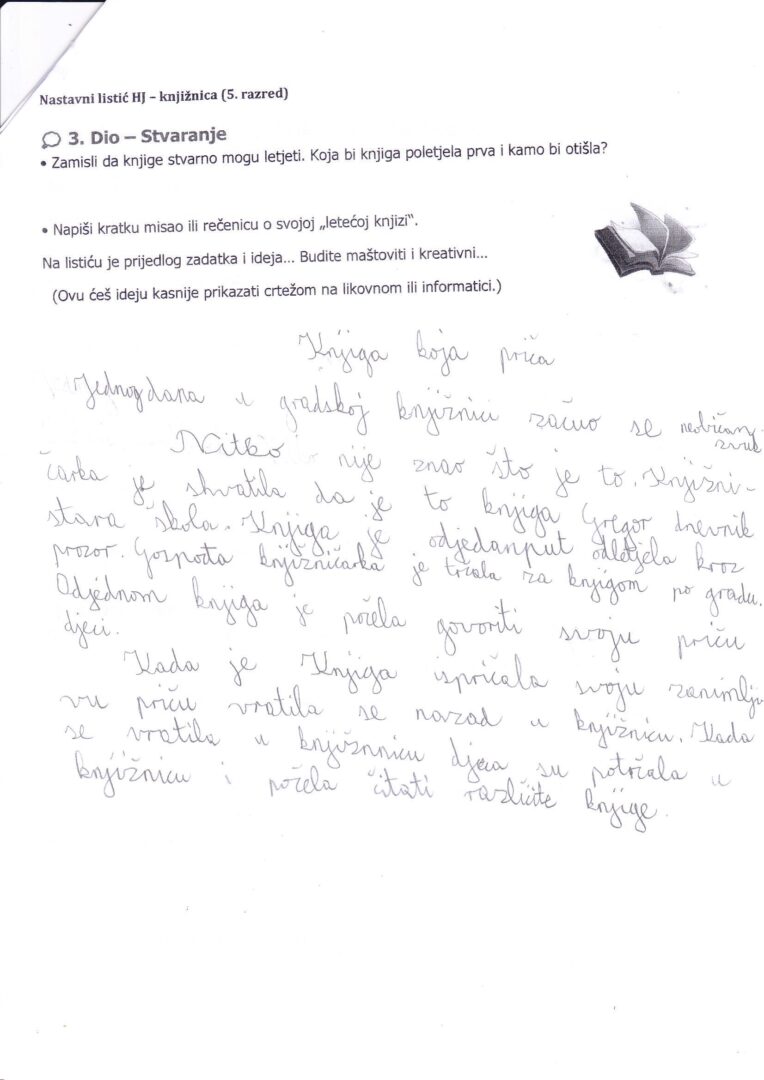 Nastavni listić HJ – knjižnica (5. razred)
3. Dio – Stvaranje
• Zamisli da knjige stvarno mogu letjeti. Koja bi knjiga poletjela prva i kamo bi otišla?
• Napiši kratku misao ili rečenicu o svojoj „letećoj knjizi“.
Na listiću je prijedlog zadatka i ideja... Budite maštoviti i kreativni...
(Ovu ćeš ideju kasnije prikazati crtežom na likovnom ili informatici.)
Knjiga koja priča
Jednog dana u gradskoj knjižnici začuo se neobičan zvuk
Nitko nije znao što je to. Knjižni-
čarka je shvatila da je to knjiga Gregor dnevnik
stara škola. Knjiga je odjedanput odletjela kroz
prozor. Gospođa knjižničarka je trčala za knjigom po gradu.
Odjednom knjiga je počela govoriti svoju priču
djeci.
Kada je Knjiga ispričala svoju zanimlji
vu priču vratila se nazad u knjižnicu. Kada
se vratila u knjižnnicu djeca su potrčala u
knjižnicu i počela čitati različite knjige.